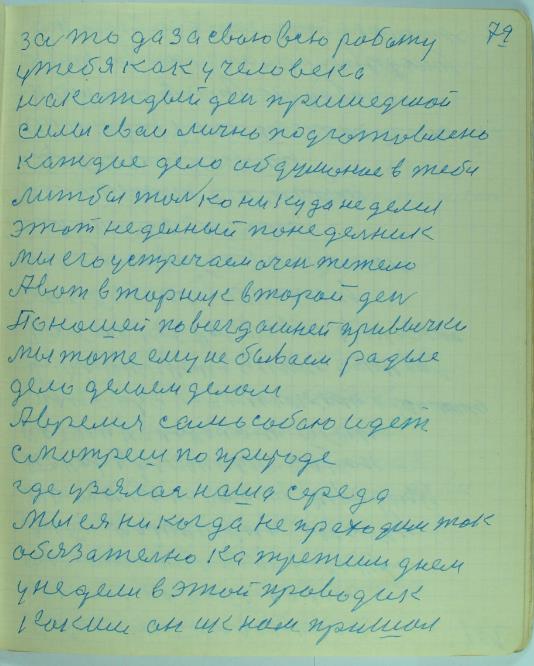 79
за то да за свою всю роботу
у тебя как у человека
на каждый ден пришедшой
силы свои лично подготовлено
каждое дело обдумоное в тебя
литбы толко никуда не делся
этот неделный понеделник
мы его устречаем очен тежело
А вот вторник второй ден
По нашей повсегдашней привычки
мы тоже ему не бываем рады
дело делаем делом
А время само собою идет
смотреш по природе
где узялася наша середа
Мы ея никогда не праходим так
обязателно ка третим днем
у недели в этой проводик
Каким он ик нам пришол